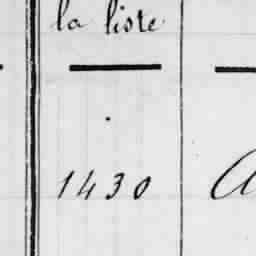 la liste
1430